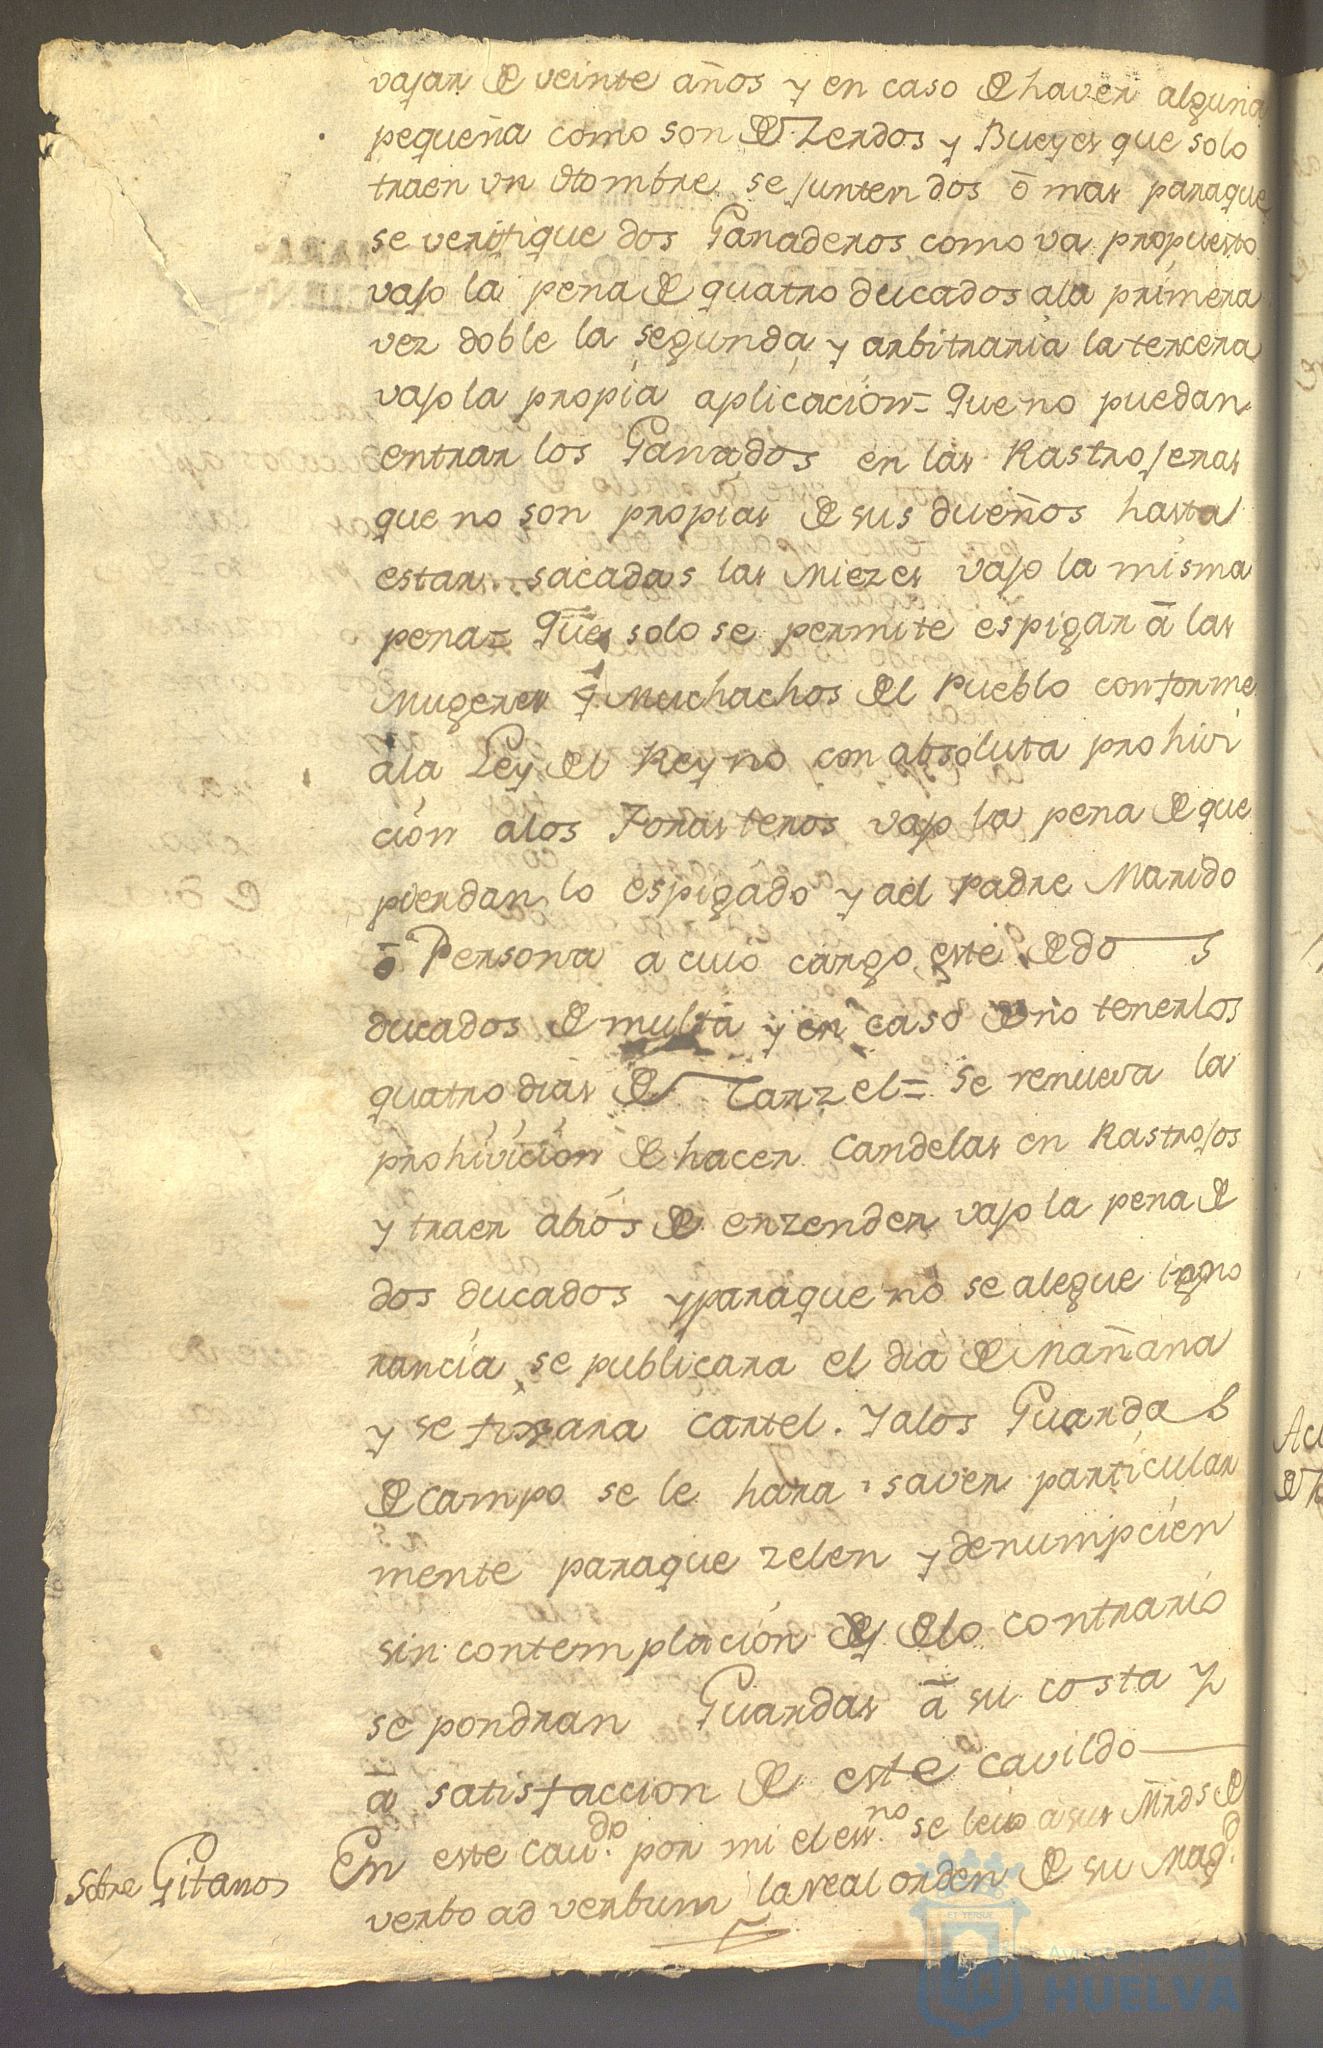 vajan de veinte años y en caso de haver alguna
pequeña como son de Zerdos y Bueyes que solo
traen un Hombre se junten dos ō mas paraque
se verifique dos Ganaderos como va propuesto
vajo la pena de quatro ducados ala primera
vez doble la segunda y arbitraria la tercera
vajo la propia aplicacion= Que no puedan
entrar los Ganados en las Rastrojeras
que no son propias de sus dueños hasta
estar sacadas las Miezes vajo la misma
pena= Que solo se permite espigar ā las
Mugeres y Muchachos del Pueblo conforme
ala Ley del Reyno con absoluta prohivi
cion alos Forasteros vajo la pena de que
pierdan lo espigado y ael Padre Marido
ō Persona a cuio cargo este de dos
ducados de multa y en caso de no tenerlos
quatro dias de Carzel= Se renueva la
prohivicion de hacer Candelas en Rastrojos
y traer abios de enzender vajo la pena de
dos ducados y paraque no se alegue igno
rancia se publicara el dia de Mañana
y se fixara cartel. Y alos Guardas
de Campo se le hara saver particular
mente paraque zelen y denumpcien
sin contemplacion y de lo contrario
se pondran Guardas ā su costa y
ā satisfaccion de este cavildo
Sobre Gitanos
En este Cau.do por mi el ess.no se leio a sus Mrds de
verbo ad verbum la real orden de su Mag.d
Ayuntamiento de
HUELVA